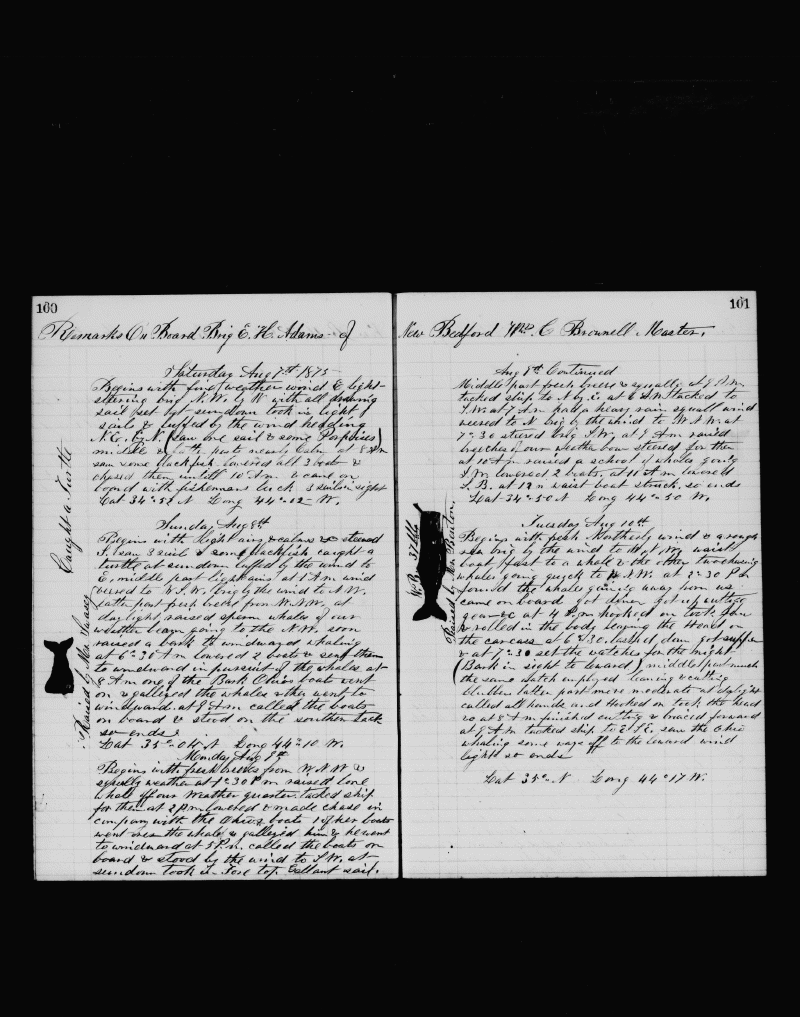 160
Remarks On Board Brig E. H. Adams of
Saturday Aug 7th 1875
Begins with fine weather wind E light
steering brig N.W. by W with all drawing
sail set by sundown took in light
sails & luffed by the wind heading
N.E. by N. (Saw one sail & some Porpoises)
middle & latter parts nearly calm at 8 Am
saw some blackfish lowered all 3 boats &
chased them untill 10 Am & came on
board with fishermans luck 3 sails in sight
Lat 34° 51 N Long 44° 12 W.
Caught a Turtle
Sunday Aug 8th
Begins with light airs & calms & steered
S. saw 3 sail & some blackfish caught a
turtle at sundown luffed by the wind to
E. middle part light airs at 1 Am wind
veered to S.W. brig by the wind to N.W.
latter part fresh breeze from W.N.W. at
daylight raised sperm whales of our
weather beam going to the N.W. soon
raised a bark to windward whaling
at 6:30 Am lowered 2 boats & sent them
to windward in pursuit of the whales at
8 Am one of the Bark Ohios boats went
on & gallied the whales & they went to
windward. at 9 Am called the boats
on board & stood on the southern tack
so ends
Lat 35° 04 N Long 44° 10 W.
Raised by Mr.
Monday Aug 9th
Begins with fresh breeses from W.N.W &
squally weather at 1:30 Pm raised lone
whale off our weather quarter. tacked ship
for them at 2 pm lowered & made chase in
company with the Ohios 2 boats 1 of her boats
went over the whale & gallied him & he went
to windward at 5 P.m. called the boats on
board & stood by the wind to S.W. at
sundown took in Fore top Gallant sail.
161
New Bedford Wm. C Brownell Master.
Aug 9th Continued
Middle part fresh breese & squally at 1 Am
tacked ship to N by E. at 6 Am tacked to
S.W. at 7 Am had a heavy rain squall wind
veered to N brig by the wind to W.N.W. at
7:30 steered brig S.W. at 9 Am raised
breeches of our weather bow steered for them
at 10 Am raised a school of whales going
lowered 2 boats. at 11 Am lowered
S.B. at 12 m waist boat struck. so ends
Lat 34° 50 N Long 44° 50 W.
Tuesday Aug 10th
Begins with fresh Northerly wind & a rough
sea brig by the wind to waist
boat fast to a whale & the other two chasing
whales going quick to W.N.W. at 2:30 Pm
found the whales gaining away from us
came on board got diner got up cutting
gear &c at 4 Pm hooked on took Jaw
& rolled in the body leaving the Head on
the carcass at 6:30. lashed down got supper
& at 7:30 set the watches for the night
(Bark in sight to leward) middle part much
the same watch employed leaning & cutting
blubber latter part more moderate at daylight
called all hands and Hooked on took the head
at 8 Am finished cutting & braced forward
at 9 Am tacked ship to E.S.E. saw the Ohio
whaling some ways off to the leward wind
light so ends
Lat 35° N Long 44° 17 W.
Raised by Mr.